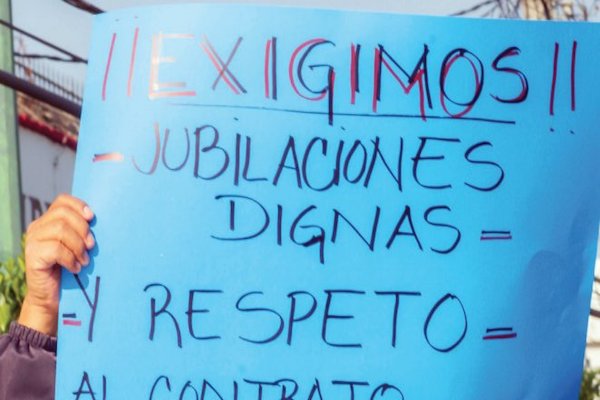 ¡¡EXIGIMOS!!
-JUBILACIONES
DIGNAS=
=Y RESPETO=
AL CONTRATO